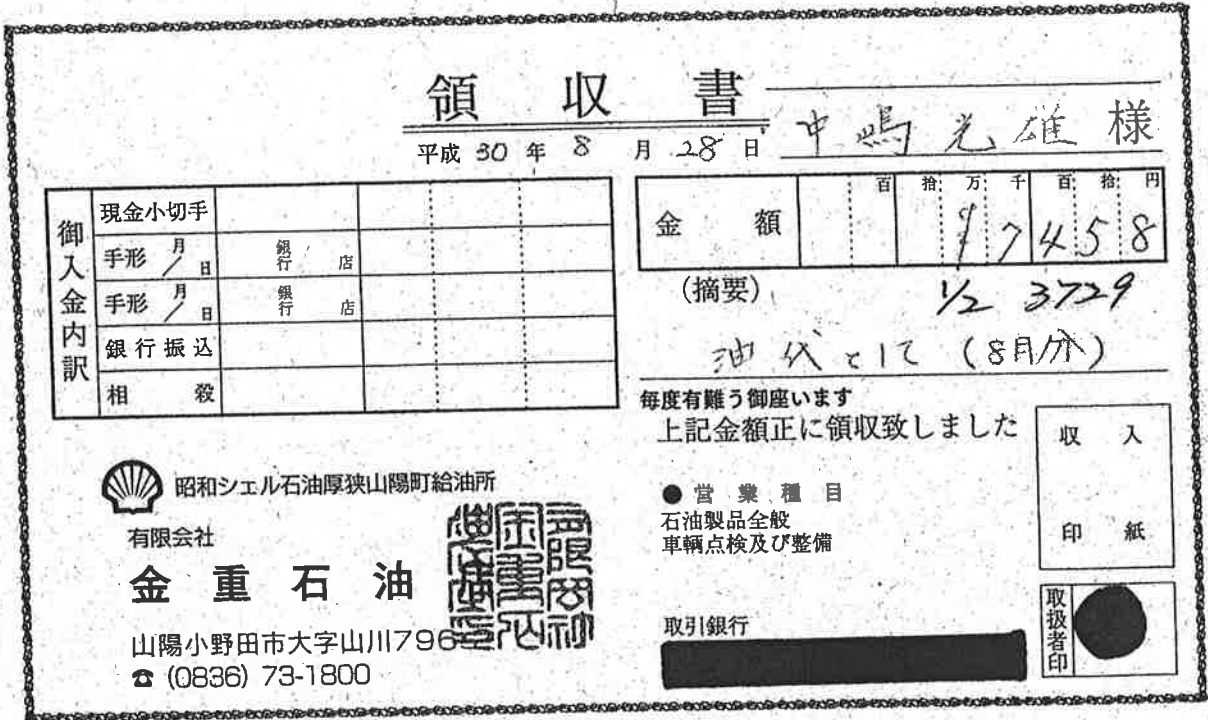 領収書
平成 30 年 8 月 28 日
中嶋光雄 様
御入金内訳
現金小切手
手形 月/日 銀行 店
手形 月/日 銀行 店
銀行振込
相殺
金額
百 拾 万 千 百 拾 円
¥7458
(摘要)
1/2 3729
油代として (8月分)
毎度有難う御座います
上記金額正に領収致しました
収入印紙
昭和シェル石油厚狭山陽町給油所
有限会社
金重石油
山陽小野田市大字山川796
☎ (0836) 73-1800
●営業種目
石油製品全般
車輌点検及び整備
取引銀行
取扱者印